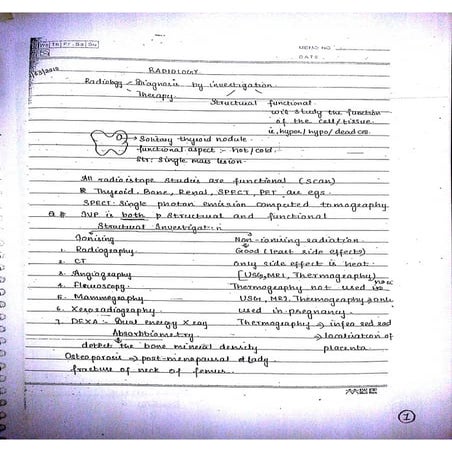 We Th Fr Sa Su
MEMO NO
DATE
RADIOLOGY
Radiology - Diagnosis by investigation
Therapy Structural functional
will study the function
of the cell/tissue
ie, hyper/hypo/dead
Solitary thyroid nodule
functional aspect :- hot/cold.
Str: Single mass lesion.
All radioisotope studies are functional (Scan)
Thyroid, Bone, Renal, SPECT, PET are egs.
SPECT: Single photon emission computed tomography
Q # IVP is both structural and functional
Structural Investigation
Ionising Non-ionising radiation
1. Radiography Good (least side effects)
2. CT Only side effect is heat.
3. Angiography [USG, MRI, Thermography)
4. Fluoroscopy. Thermography not used
5. Mammography USG, MRI, Thermography
6. Xeroradiography used in pregnancy.
7. DEXA :- Dual energy X ray Thermography → infra red rad
Absorbtiometry → localisation of
detect the bone mineral density placenta.
Osteoporosis → post-menopausal lady
fracture of neck of femur.
1